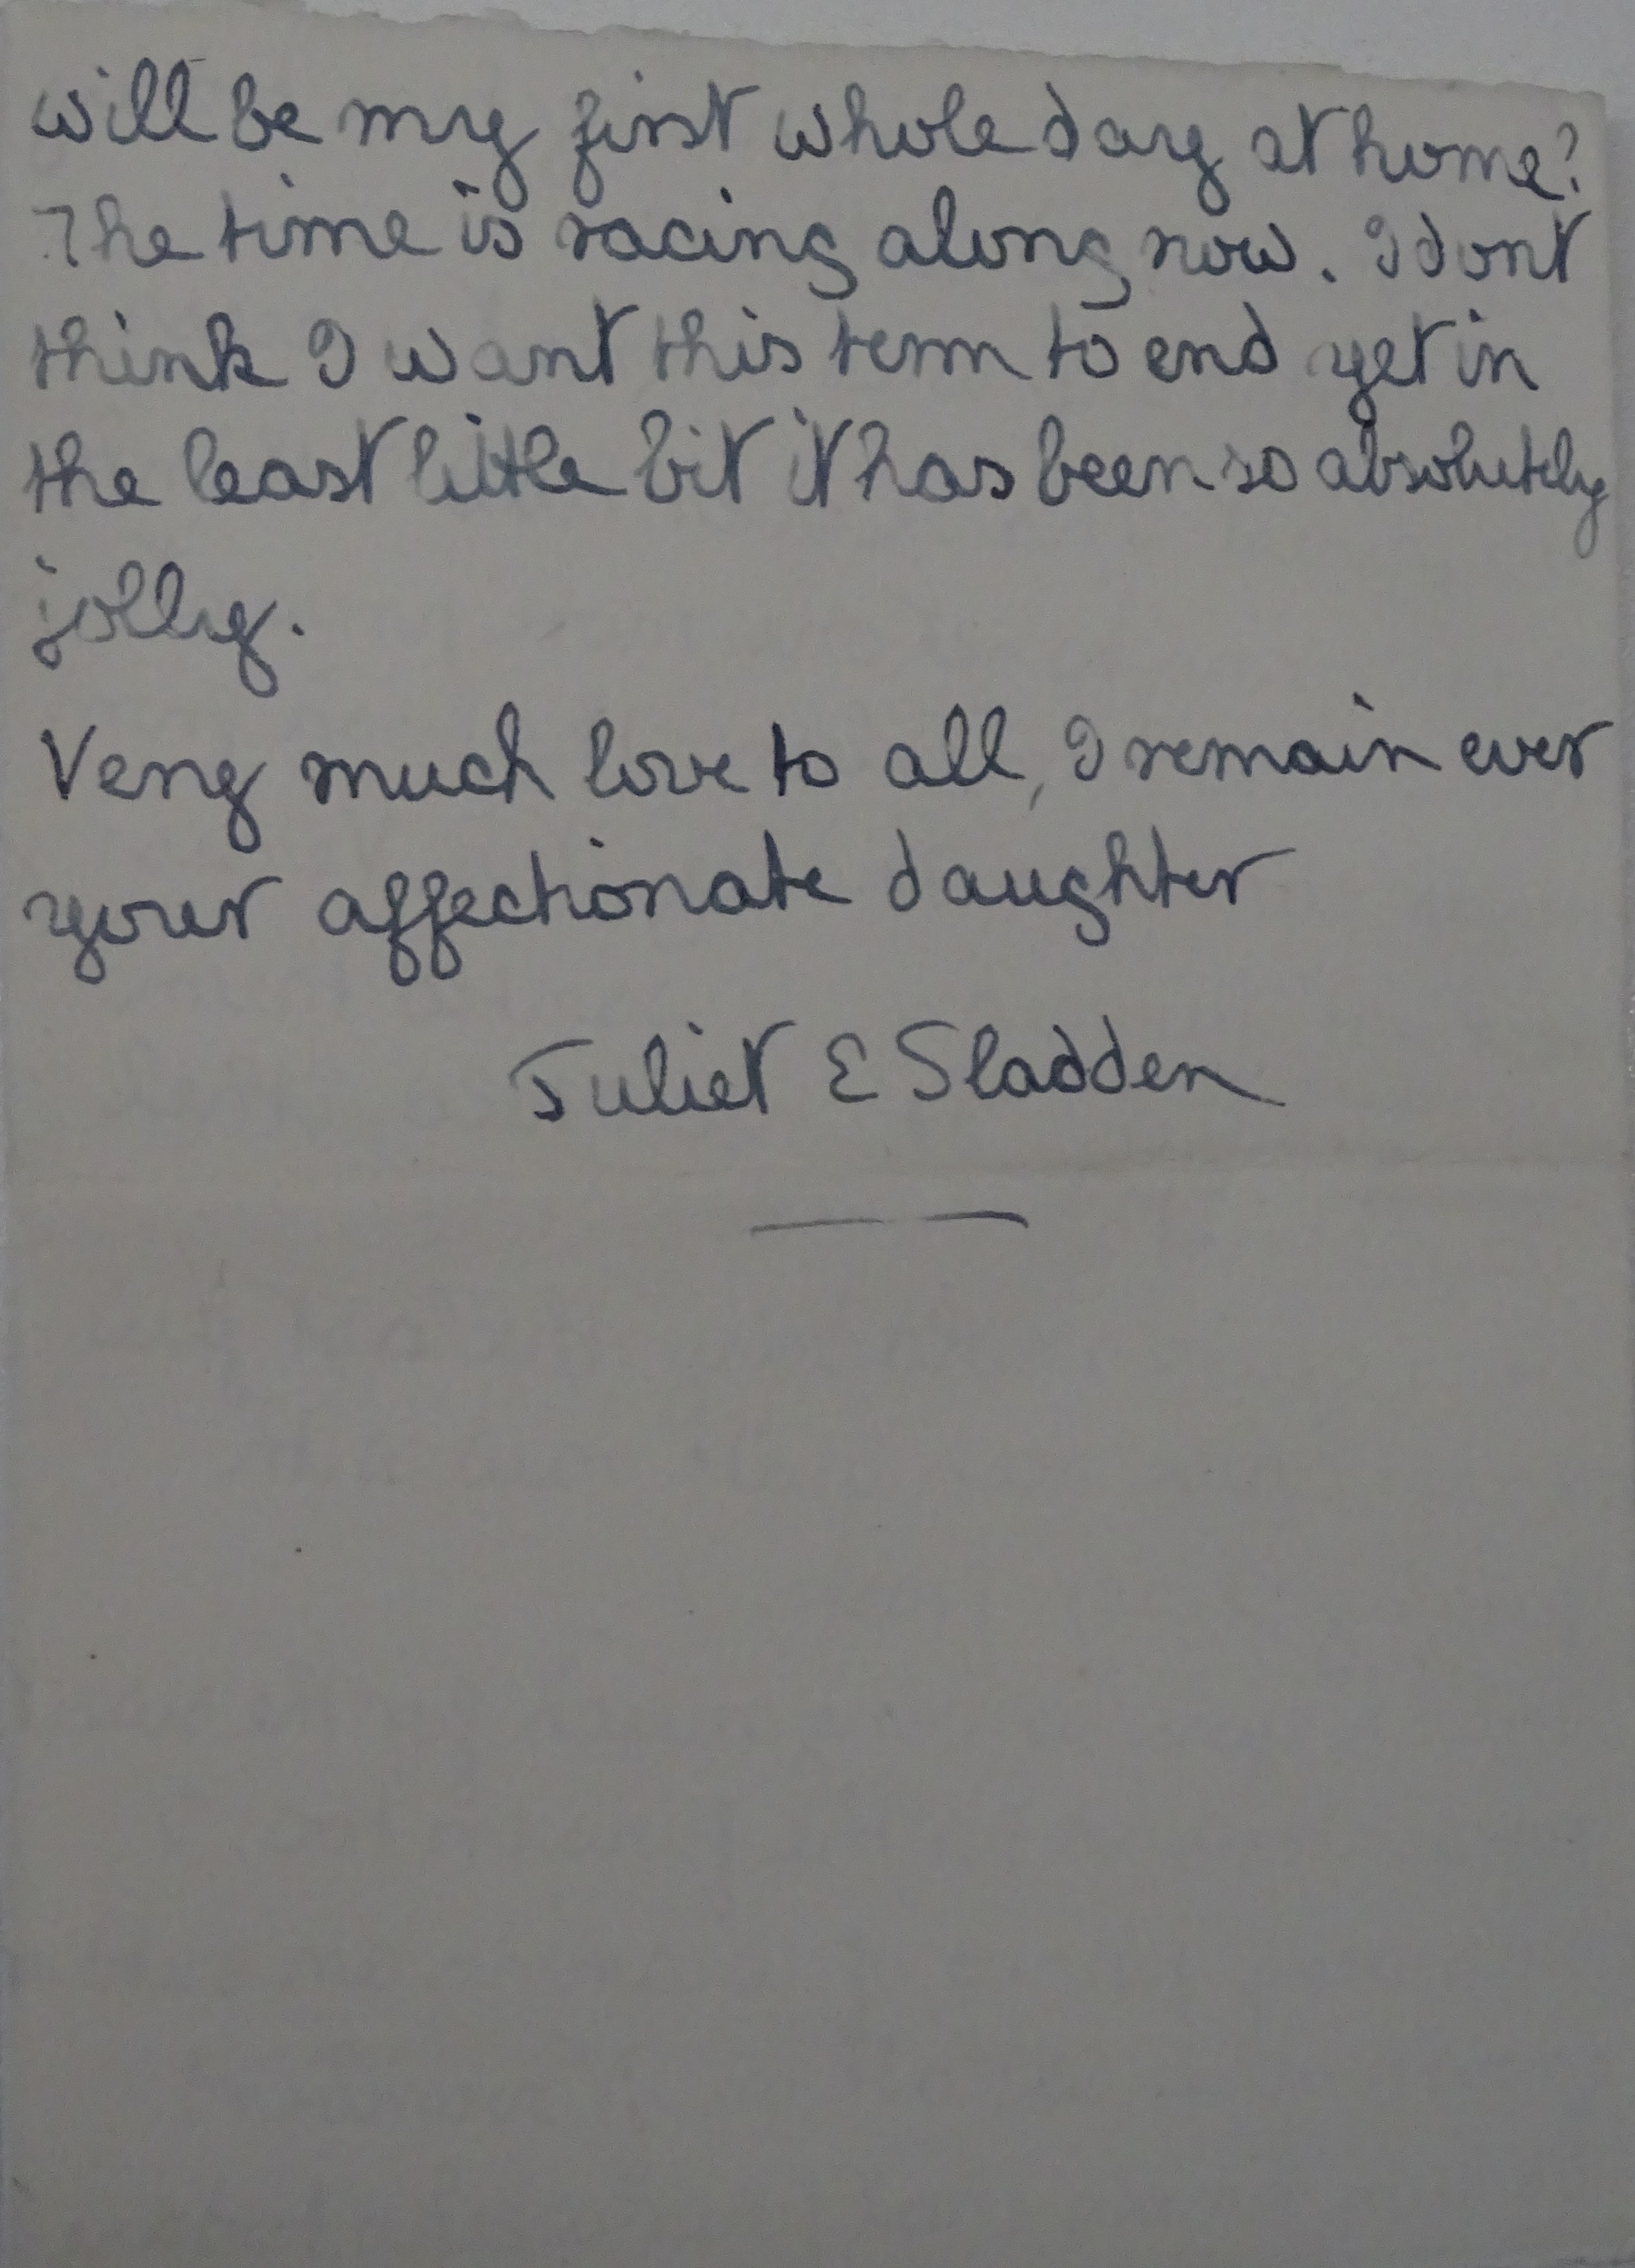 will be my first whole day at home?
The time is racing along now. I dont
think I want this term to end yet in
the least little bit it has been so absolutely
jolly.
Very much love to all, I remain ever
your affectionate daughter
Juliet E Sladden